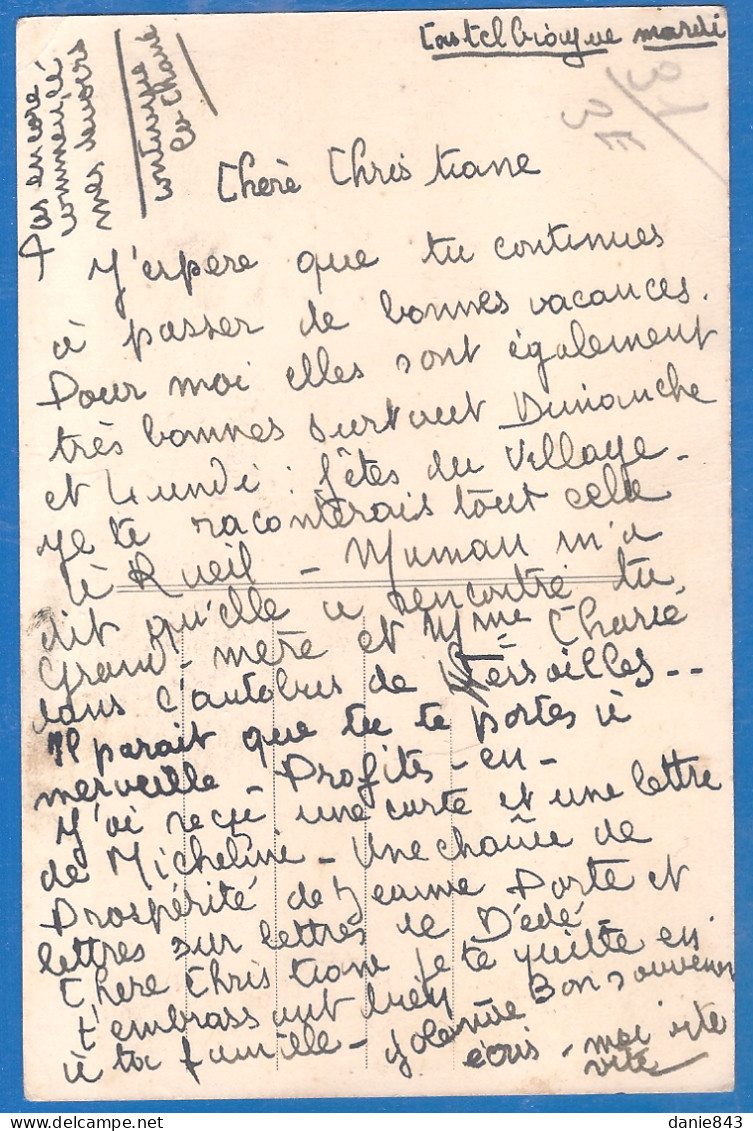 Castelbiague mardi
31
3E
Pas encore
commencé
mes devoirs
continue
Chère Christiane
J'espère que tu continues
à passer de bonnes vacances.
Pour moi elles sont également
très bonnes surtout Dimanche
et Lundi : fêtes du Village.
Je te raconterais tout cela
à Rueil - Maman m'a
dit qu'elle a rencontré ta
Grand-mère et Mme Charié
dans l'autobus de Versailles --
Il parait que tu te portes à
merveille - Profites-en -
J'ai reçu une carte et une lettre
de Micheline - Une chaîne de
Prospérité de Jeanne Porte et
lettres sur lettres de Dédé -
Chère Christiane je te quitte en
t'embrassant bien Bon souvenir
à ta famille - Yolande
écris-moi vite
vite
danie843